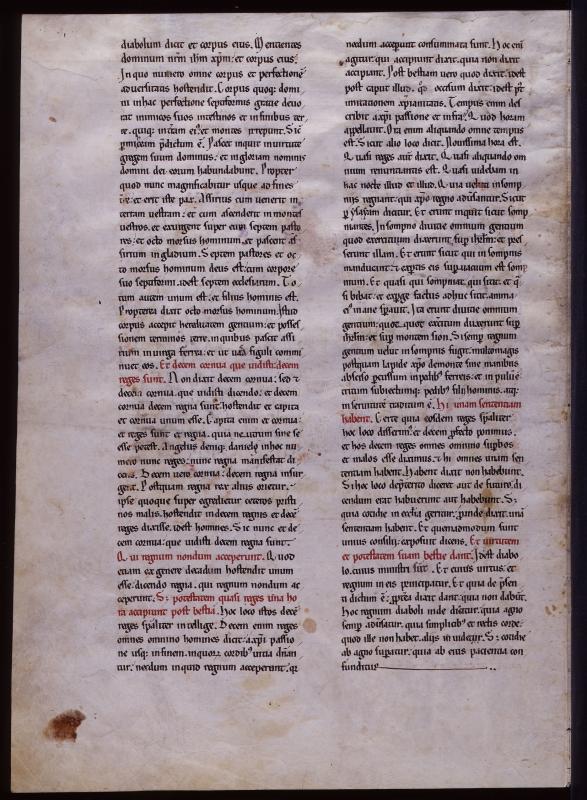 diabolum dicit et corpus eius. Mentientes
dominum nrm ihm xpm: et corpus eius.
In quo numero omne corpus et perfectione
aduersitatis hostendit. Corpus quoq: domi
ni in hac perfectione septiformis gratie deuo
rat inimicos suos intestinos et in finibus ter
Pascet inquit in uirtute
gregem suum dominus: et in gloriam nominis
domini dei eorum habundabunt. Propter
quod nunc magnificabitur usque ad fines
tre: et erit iste pax. Assirius cum uenerit in
terram uestram: et cum ascenderit in montes
uestros. et exurgent super eum septem pasto
res: et octo morsus hominum. et pascent as
sirium in gladium. Septem pastores et oc
to morsus hominum deus est: cum corpore
suo septiformi. idest septem ecclesiarum. To
tum autem unum est: et filius hominis est.
Propterea dixit octo morsus hominum. Istud
corpus accepit hereditatem gentium: et posses
sionem terminos terre. in quibus pascit assi
rium in uirga ferrea: et ut uas figuli commi
nuet eos. Et decem cornua que uidisti: decem
reges sunt. Non dixit decem cornua: sed et
decem cornua. que uidisti dicendo: et decem
cornua decem regna sunt hostendit et capita
et cornua unum esse. Capita enim et cornua:
et reges sunt et regna. quia neutrum sine se
esse potest. Angelus deniq: danielo in hoc nu
mero nunc reges: nunc regna manifestat di
cens. Decem uero cornua: decem regna insur
gent. Postquam regna rex alius orietur.
ipse quoque super egredietur ceteros pristi
nos malis. hostendit in decem regnis et decem
reges dixisse. idest homines. Sic nunc et de
cem cornua: que uidisti decem regna sunt.
Qui regnum nondum acceperunt. Quod
etiam ex genere decadum hostendit unum
esse. dicendo regna. qui regnum nondum ac
ceperunt. S: potestatem quasi reges una ho
ra accipiunt post bestia. Hoc loco istos decem
reges spaliter intellige. Decem enim reges
omnes omnino homines dicit: a xpi passio
ne usq: in finem. in quorum cordib: uitia dnan
tur. necdum inquid regnum acceperunt. q
necdum acceperunt consummata sunt. Hoc eni
agitur. qui accipiunt dixit. quia non dixit
accipiant. Post bestiam uero quod dixit: idest
post caput illud. qd occisum dixit: idest pt
imitationem xpianitatis. Tempus enim des
cribit a xpi passione et infra. Quod horam
appellauit. Ora enim aliquando omne tempus
est. Sicut alio loco dicit. Nouissima hora est.
Quasi reges aut dixit. Quasi aliquando om
nium renuntiantis est. Quasi uidelam in
hac nocte illud et illud. Quia uelut in somp
nijs regnant: qui xpo regno aduersantur. Sicut
p ysayam dicitur. Et erunt inquit sicut somp
niantes. In sompno diuitie omnium gentium
quod exercitum dixerunt sup ihrlm: et pres
serunt illam. Et erunt sicut qui in sompnis
manducant: et expertis eis superuacuum est somp
nium. Et quasi qui sompniat qui sitit: et q
si bibat: et experge factus adhuc sitit: anima
ei in ane sperauit. Ita erunt diuitie omnium
gentium: quotquot exercitum duxerunt sup
ihrlm: et sup montem sion. Si semp regnum
gentium uelut in sompnis fugit: multo magis
postquam lapide xpo demonte sine manibus
absciso percussum in pedib: ferreis: et in pulue
rem subiectumq: pedib: filij hominis. atq:
in seruitute traditum e. Hi unam sententiam
habent. Certe quia eosdem reges spaliter
hoc loco disserim: et decem pfecto ponimus:
et hos decem reges omnes omnino supbos
et malos esse diximus: hi omnes unam sen
tentiam habent. Habent dixit non habebunt.
Si hoc loco depterito diceret aut de futuro: di
cendum erat habuerunt aut habebunt. S:
quia cotidie in ecclia geritur. proinde dixit. una
sententiam habent. Et quemadmodum sunt
unius consilij: exposuit dicens. Et uirtutem
et potestatem suam bestie dant. Idest diabo
lo. cuius ministri sunt. Et cuius uirtus: et
regnum in eis principatur. Et quia de psen
ti dictum e: pterea dixit dant: quia non dabunt.
Hoc regnum diaboli inde dicitur. quia agno
semp aduersatur. quia simplicib: et rectis corde:
quod ille non habet. alijs in uidetur. S: cotidie
ab agno superatur. quia ab eius pacientia con
funditur